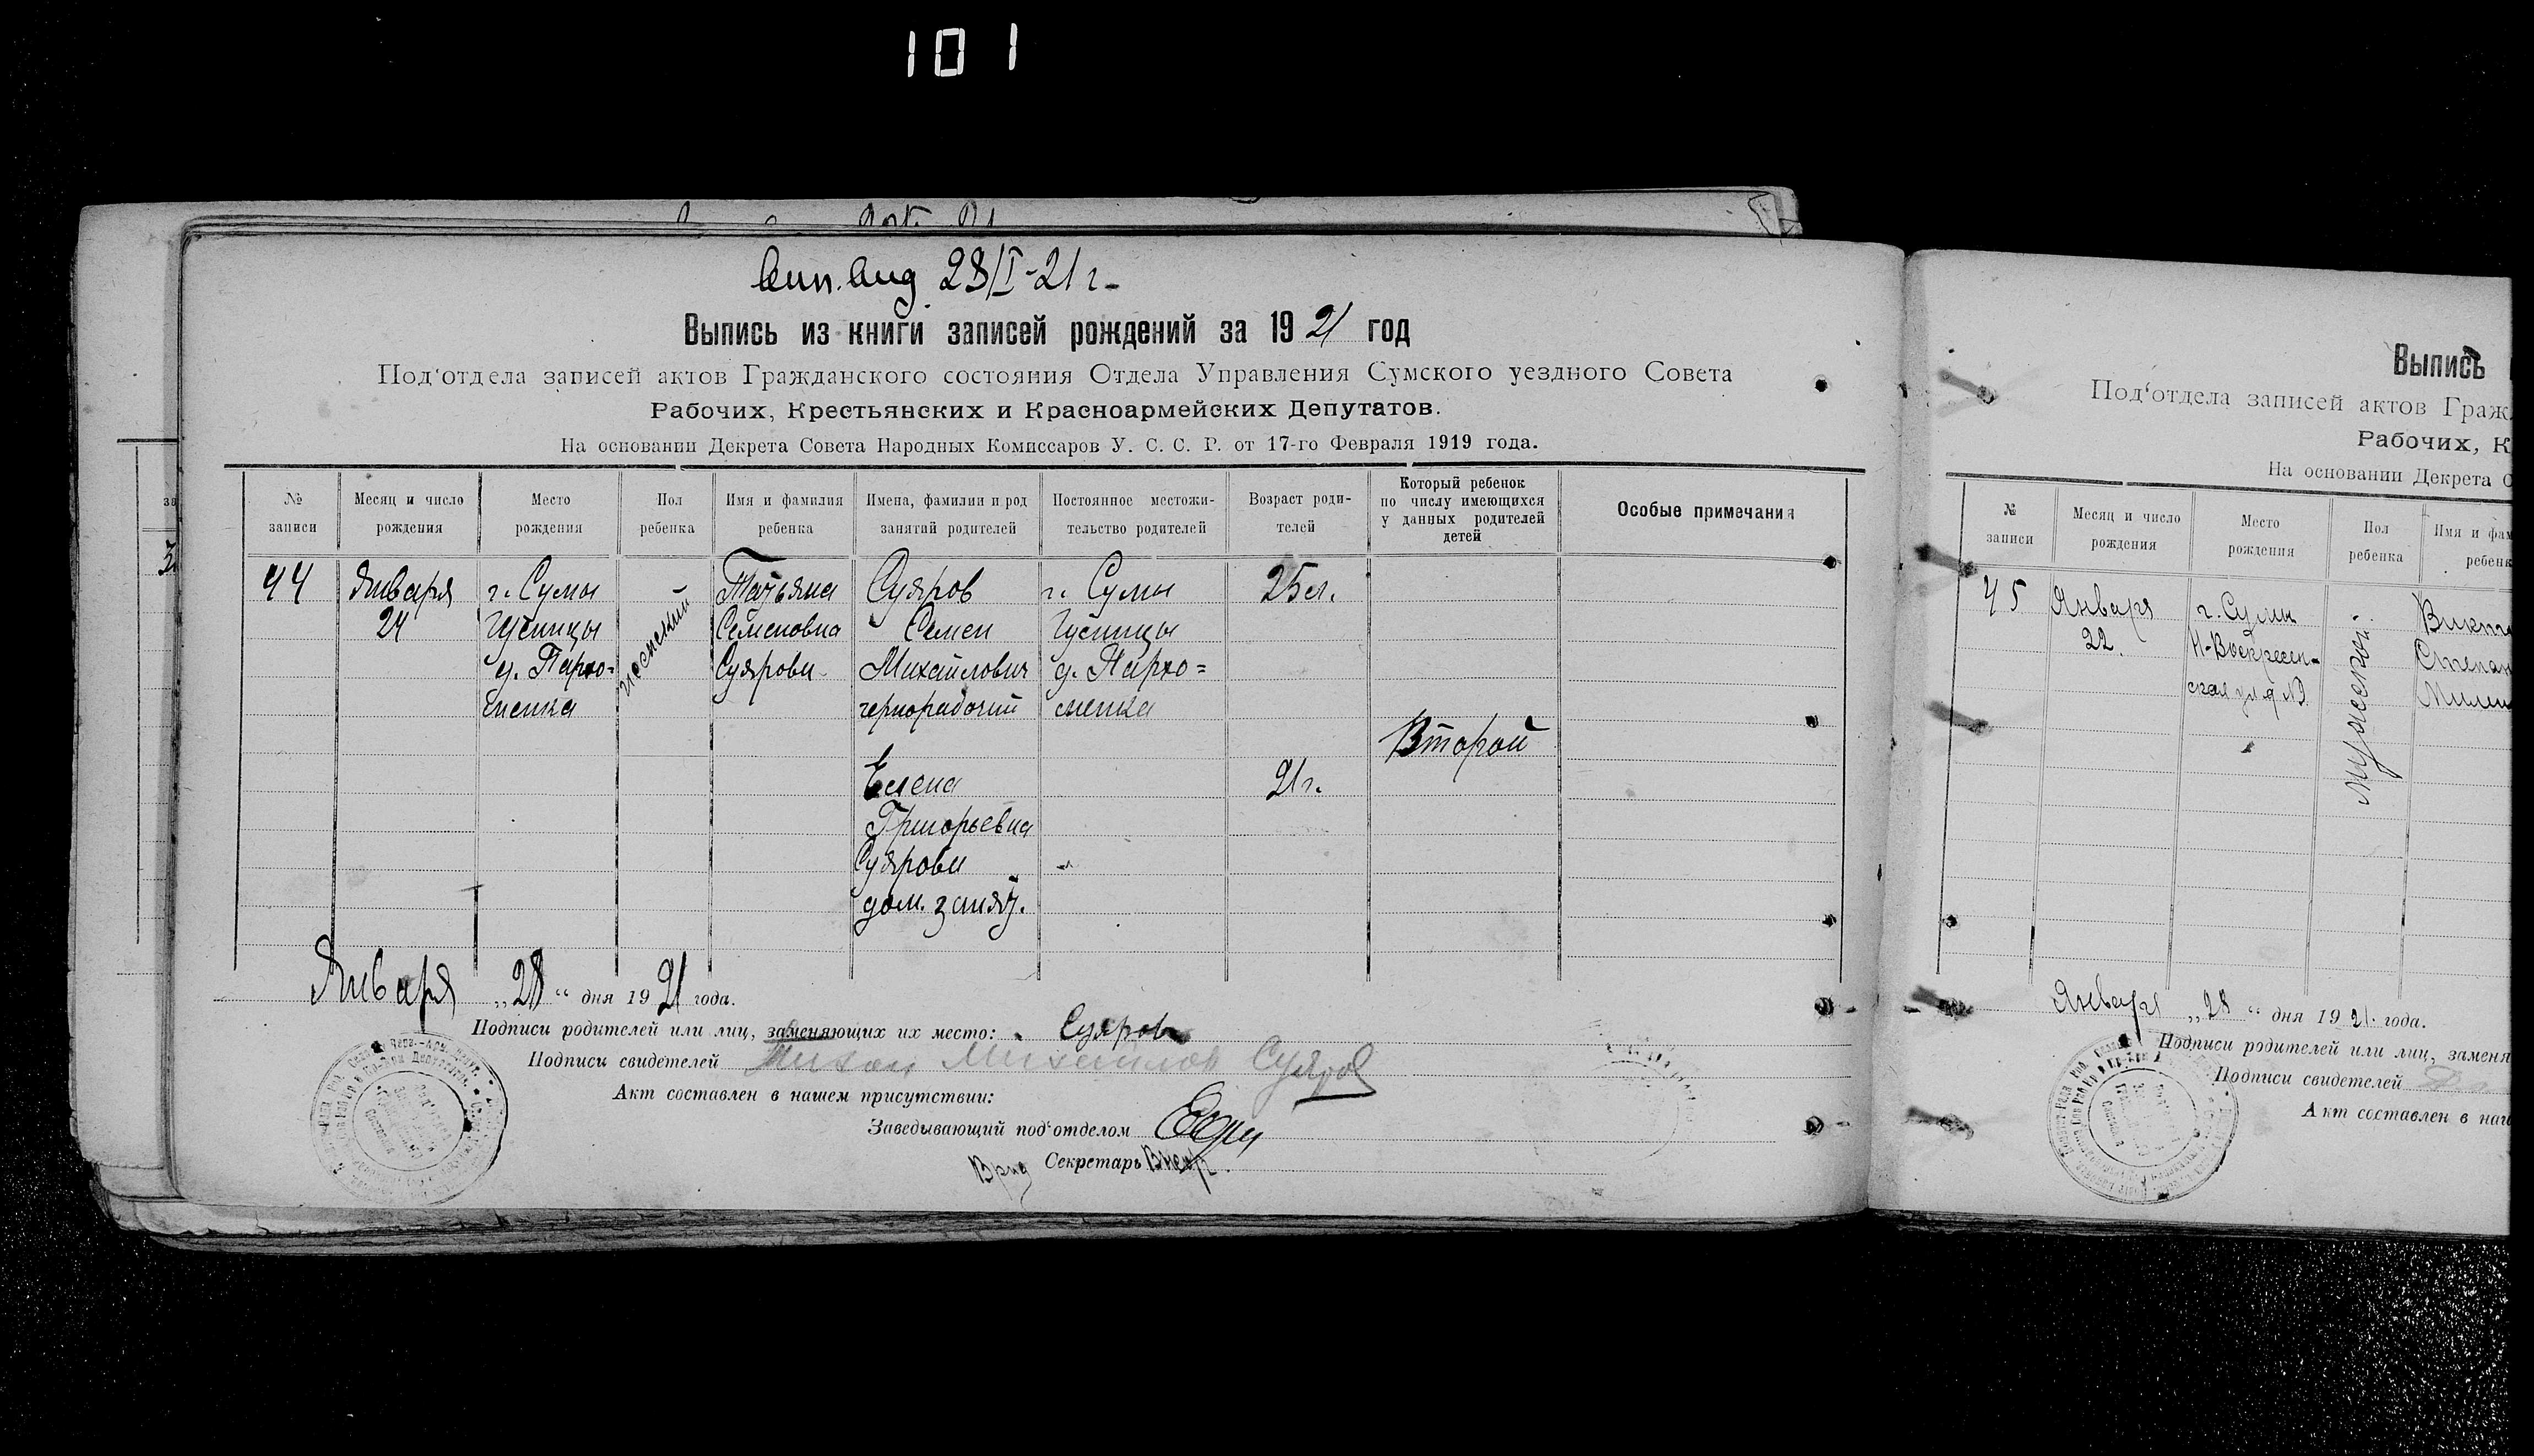 101
28/I-21 г.
Выпись из книги записей рождений за 1921 год
Под‘отдела записей актов Гражданского состояния Отдела Управления Сумского уездного Совета
Рабочих, Крестьянских и Красноармейских Депутатов.
На основании Декрета Совета Народных Комиссаров У. С. С. Р. от 17-го Февраля 1919 года.
№ записи
Месяц и число рождения
Место рождения
Пол ребенка
Имя и фамилия ребенка
Имена, фамилии и род занятий родителей
Постоянное местожи-
тельство родителей
Возраст роди-
телей
Который ребенок
по числу имеющихся
у данных родителей
детей
Особые примечания
44
Января
24
г. Сумы
д. Пархо=
менка
женский
Татьяна
Семеновна
Суярова
Суяров
Семен
Михайлович
чернорабочий
Елена
Григорьевна
Суярова
дом. занят.
г. Сумы
д. Пархо=
менка
25 л.
21 г.
Второй
Января „28“ дня 1921 года.
Подписи родителей или лиц, заменяющих их место: Суяров
Подписи свидетелей Суяров
Акт составлен в нашем присутствии:
Заведывающий под‘отделом
Врид Секретарь
Выпись
Под‘отдела записей актов Граж
Рабочих, К
На основании Декрета С
№ записи
Месяц и число рождения
Место рождения
Пол ребенка
Имя и фам
ребенк
45
Января
22.
г. Сумы
Н-Воскресен-
ская ул д №
мужской
Викт
Степан
Января „28“ дня 1921. года.
Подписи родителей или лиц, заменя
Подписи свидетелей
Акт составлен в наш